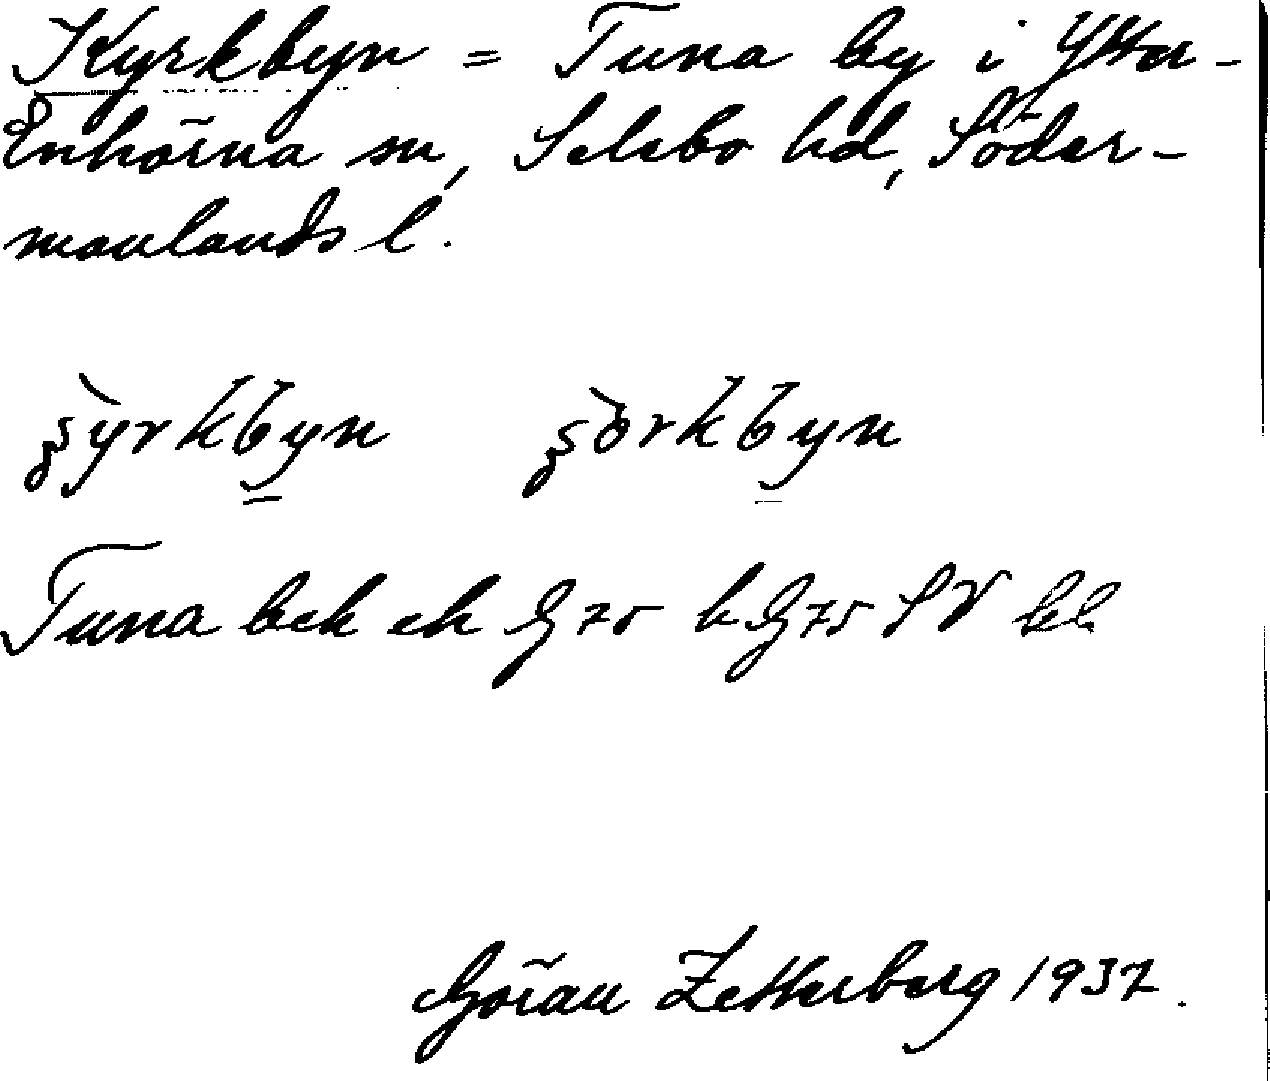 Kyrkbyn = Tuna by i Ytter-
Enhörna sn, Selebo hd, Söder-
manlands l.
Tuna bek ek G 75 k G 75 SV bl
Göran Zetterberg 1937.